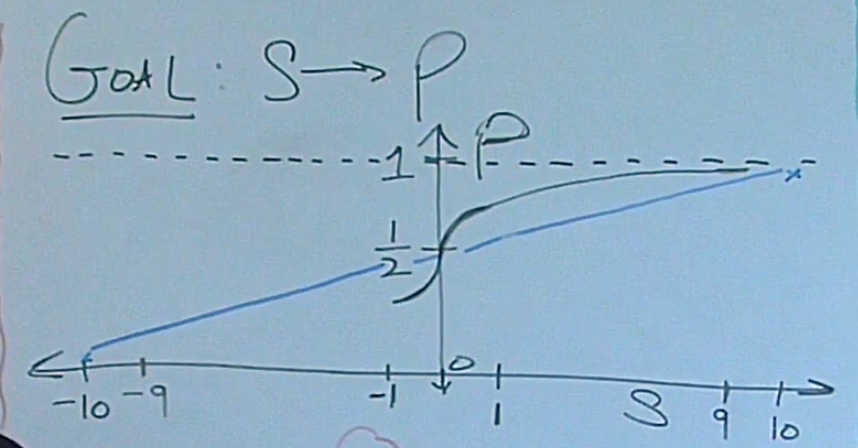 GOAL: S → P
1 P
1/2
0
-10 -9 -1 1 S 9 10